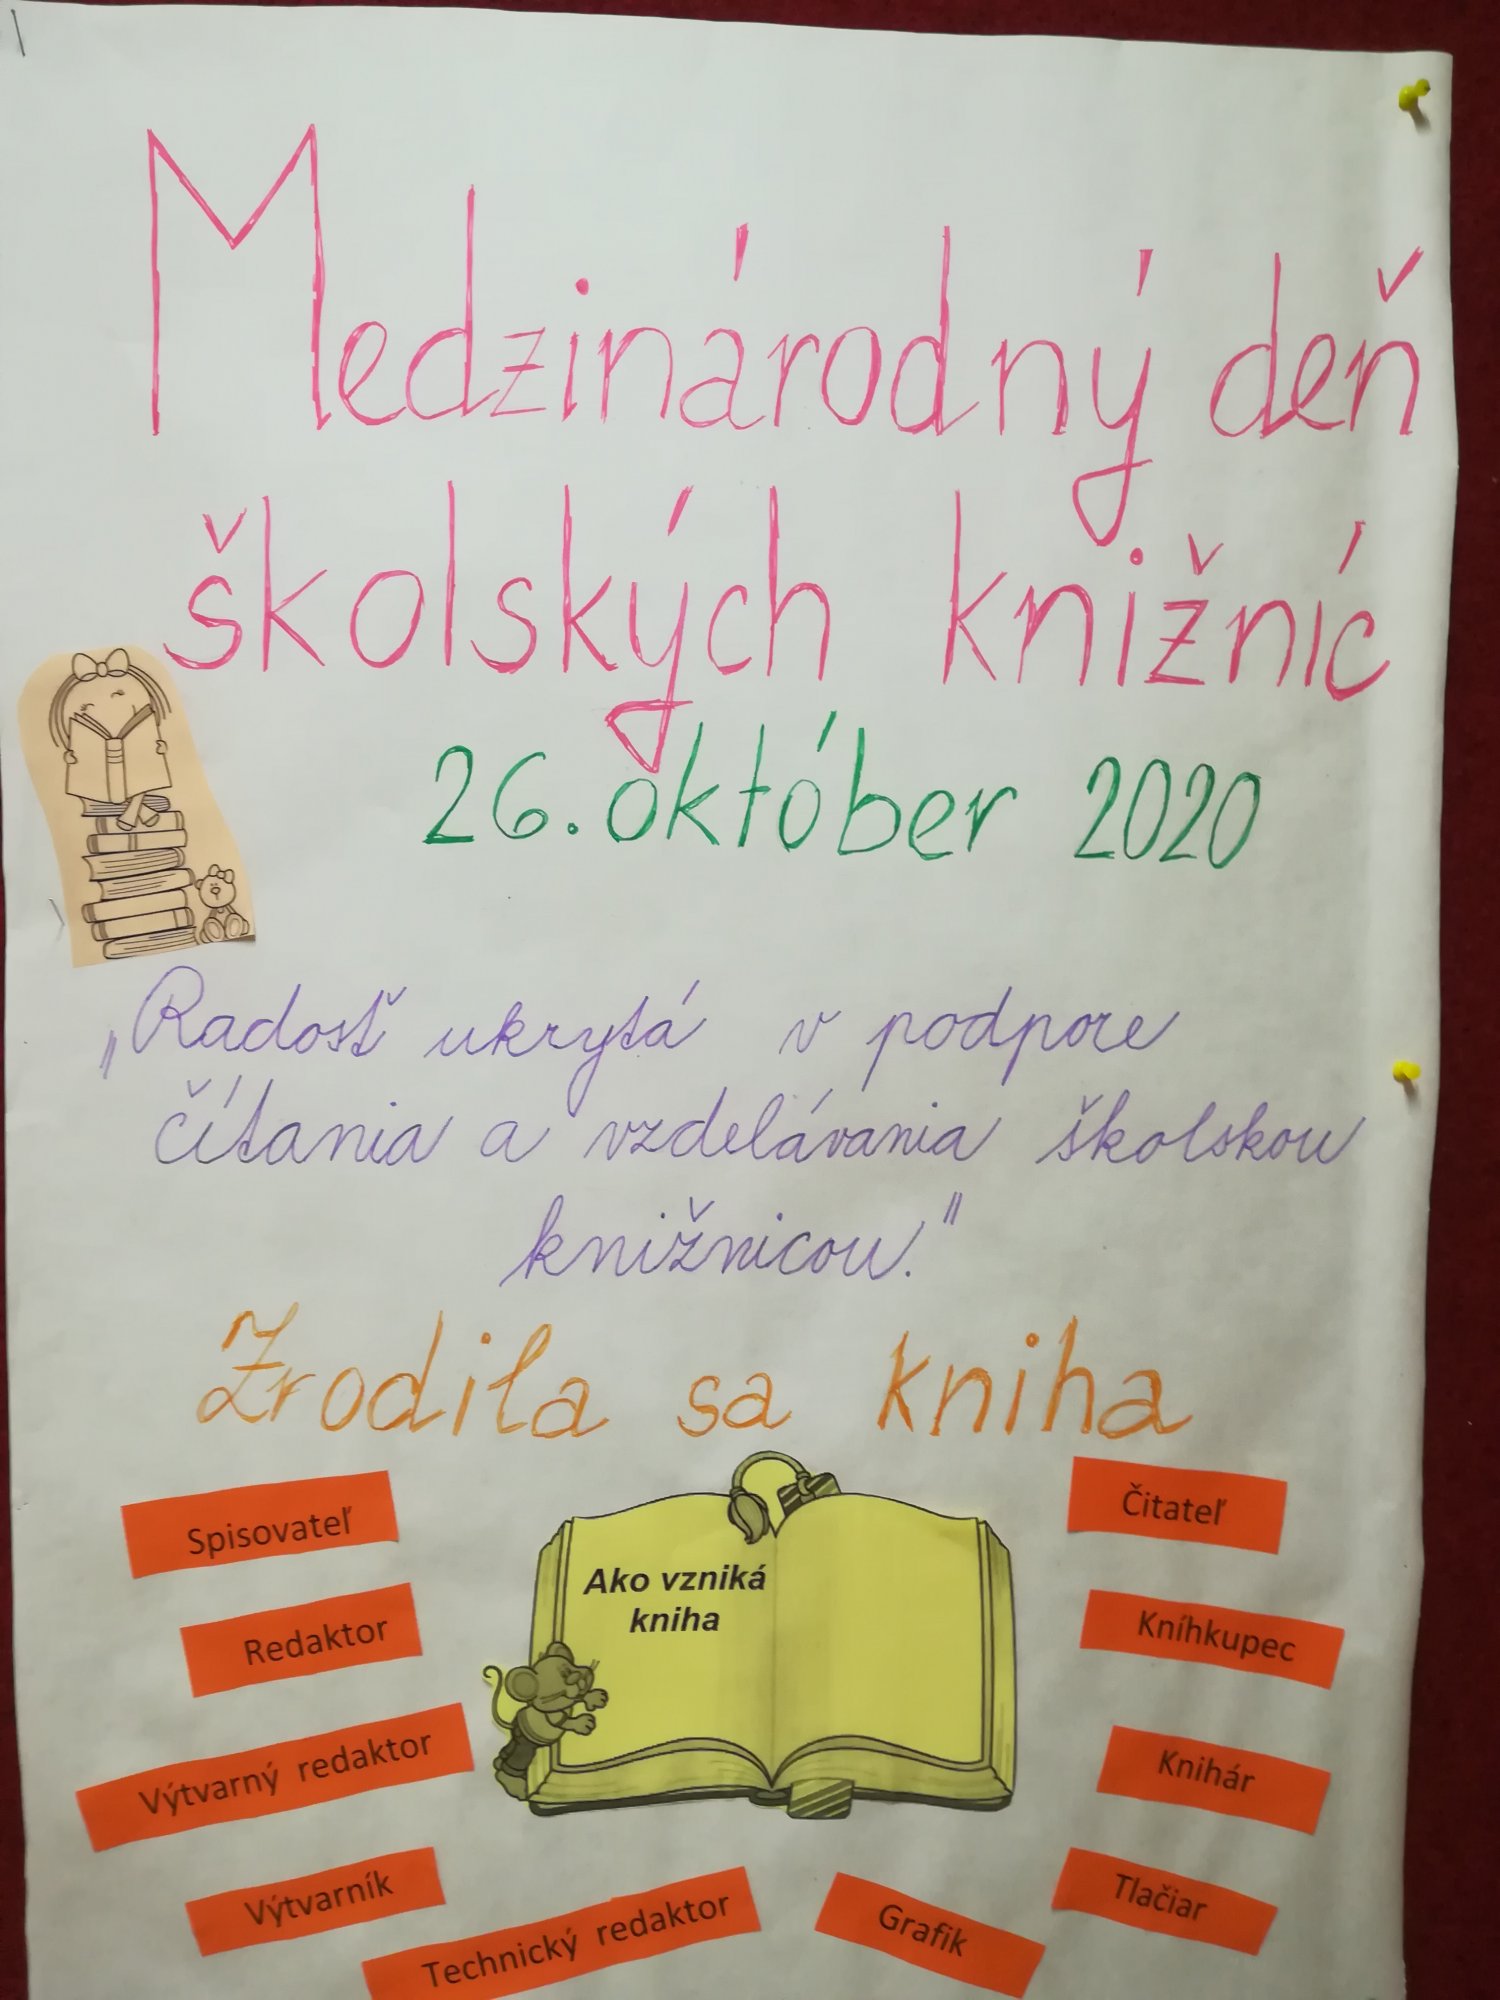 Medzinárodný deň
školských knižníc
26. október 2020
„Radosť ukrytá v podpore
čítania a vzdelávania školskou
knižnicou."
Zrodila sa kniha
Ako vzniká
kniha
Spisovateľ
Redaktor
Výtvarný redaktor
Výtvarník
Technický redaktor
Grafik
Tlačiar
Knihár
Kníhkupec
Čitateľ